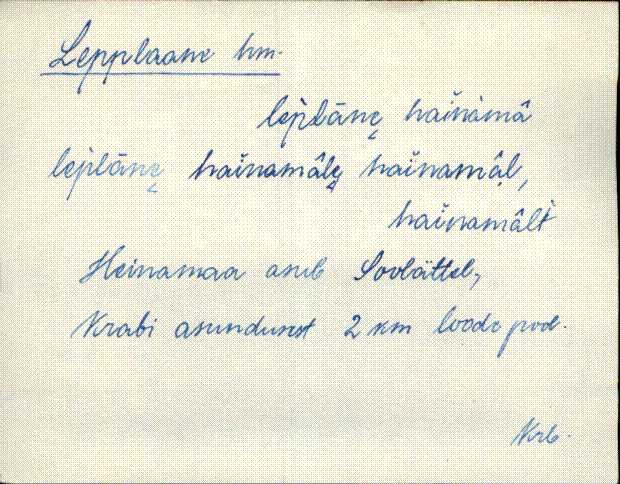 Lepplaane hm.
lep̀lāne̮ haĭnamâ
lep̀lāne̮ haĭnamâlę haĭnamâl,
haĭnamâlt
Heinamaa asub Soolättel,
Krabi asundusest 2 km loode pool.
Krb.